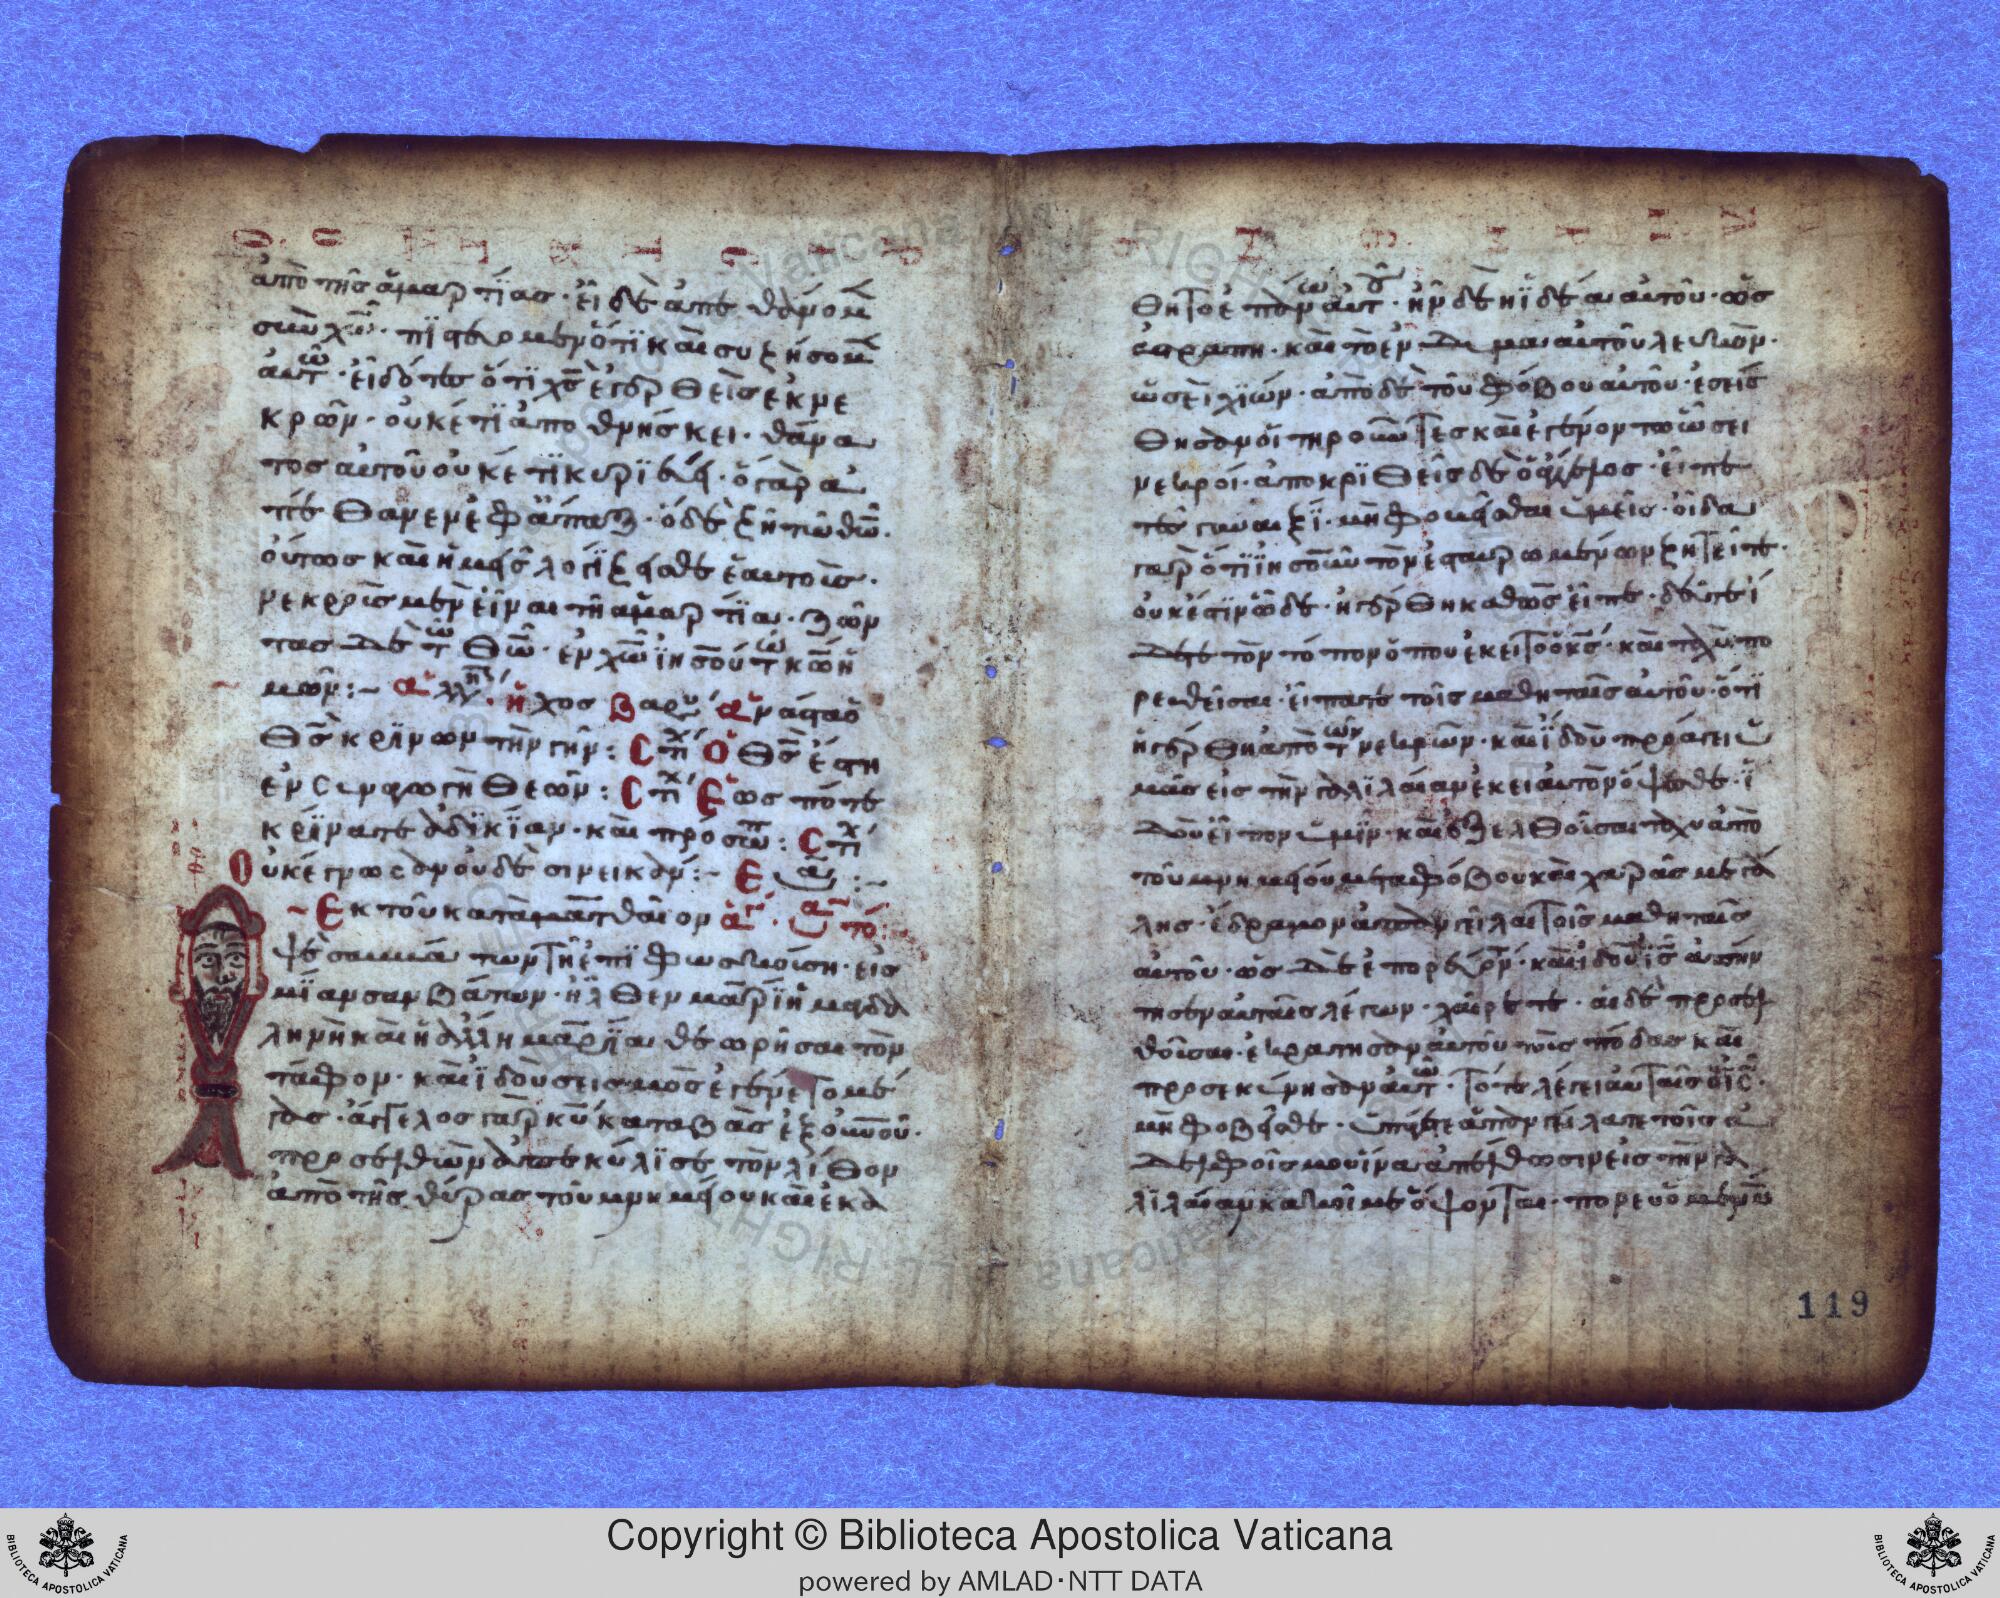 ἀπὸ τῆς ἁμαρτίας · εἰ δὲ ἀπεθάνομ
σὺν χῶ · πιστεύομεν ὅτι καὶ συζήσομ
αὐτῶ · εἰδότες ὅτι χς ἐγερθεὶς ἐκ νε
κρῶν · οὐκέτι ἀποθνήσκει · θάνα
τος αὐτοῦ οὐκέτι κυριεύει · ὃ γὰρ ἀ
πέθανεν ἐφάπαξ · ὃ δὲ ζῆ τῶ θῶ ·
οὕτως καὶ ἡμεῖς λογίζεσθε ἑαυτοὺς ·
νεκροὺς μὲν εἶναι τῆ ἁμαρτία · ζῶν
τας δὲ τῶ θῶ · ἐν χῶ ἰησοῦ τῶ κῶ ἡ
μῶν :~ ἀλλη · ἦχος βαρύ ἀνάστα ὁ
θς κρίνων τὴν γῆν : Στίχ Ὁ θς ἔστη
ἐν συναγωγῆ θεῶν : Στίχ Ἕως πότε
κρίνατε ἀδικίαν · καὶ προσωπ : Στίχ
Οὐκ ἔγνωσαν οὐδὲ συνεικαν :~ Εὐα :~
~ Ἐκ τοῦ κατὰ ματθαῖον ἁγ · εὐα τό :
Ὀψὲ σαββάτων τῆ ἐπιφωσκούση · εἰς
μίαν σαββάτων · ἦλθεν μαρίη μαγδα
ληνὴ καὶ ἡ ἄλλη μαρία θεωρῆσαι τὸν
τάφον · καὶ ἰδοὺ σεισμὸς ἐγένετο μέ
γας · ἄγγελος γὰρ κυ καταβὰς ἐξ οὐνοῦ ·
προσελθὼν ἀπεκύλισε τὸν λίθον
ἀπὸ τῆς θύρας τοῦ μνημείου καὶ ἐκά
θητο ἐπάνω αὐτοῦ · ἦν δὲ ἡ ἰδέα αὐτοῦ · ὡς
ἀστραπη · καὶ τὸ ἔνδυμα αὐτοῦ λευκὸν ·
ὡσεὶ χιών · ἀπὸ δὲ τοῦ φόβου αὐτοῦ · ἐσείσ
θησαν οἱ τηροῦντες καὶ ἐγένοντο ὡσεὶ
νεκροί · ἀποκριθεὶς δὲ ὁ ἄγγελος · εἶπε
ταῖς γυναιξί · μὴ φοβεῖσθαι ὑμεῖς · οἶδα
γὰρ ὅτι ἰησοῦν τὸν ἐσταυρωμένων ζητεῖτε ·
οὐκ ἔστιν ὧδε · ἠγέρθη καθὼς εἶπε · δεῦτε ἴ
δετε τὸν τόπον ὅπου ἔκειτο ὁ κς · καὶ ταχὺ πο
ρευθεῖσαι · εἴπατε τοῖς μαθηταῖς αὐτοῦ · ὅτι
ἠγέρθη ἀπὸ τῶν νεκρῶν · καὶ ἰδοὺ προάγει ὑ
μᾶς εἰς τὴν γαλιλαίαν ἐκεῖ αὐτὸν ὄψεσθε · ἰ
δοὺ εἶπον ὑμῖν · καὶ ἐξελθοῦσαι ταχὺ ἀπὸ
τοῦ μνημείου μετὰ φόβου καὶ χαρᾶς μεγά
λης · ἔδραμον ἀπαγγεῖλαι τοῖς μαθηταῖς
αὐτοῦ · ὡς δὲ ἐπορεύον · καὶ ἰδοὺ ις ἀπήν
τησεν αὐταῖς λέγων · χαίρετε · αἱ δὲ προσελ
θοῦσαι · ἐκράτησαν αὐτοῦ τοὺς πόδας καὶ
προσεκύνησαν αὐτῶ · τότε λέγει αὐταῖς ὁ ις ·
μὴ φοβεῖσθε · ὑπάγετε ἀπαγγείλατε τοῖς ἀ
δελφοῖς μου ἵνα ἀπέλθωσιν εἰς τὴν γα
λιλαίαν κακεῖ με ὄψονται · πορευομένων
119
Copyright © Biblioteca Apostolica Vaticana
powered by AMLAD·NTT DATA
BIBLIOTECA APOSTOLICA VATICANA
BIBLIOTECA APOSTOLICA VATICANA